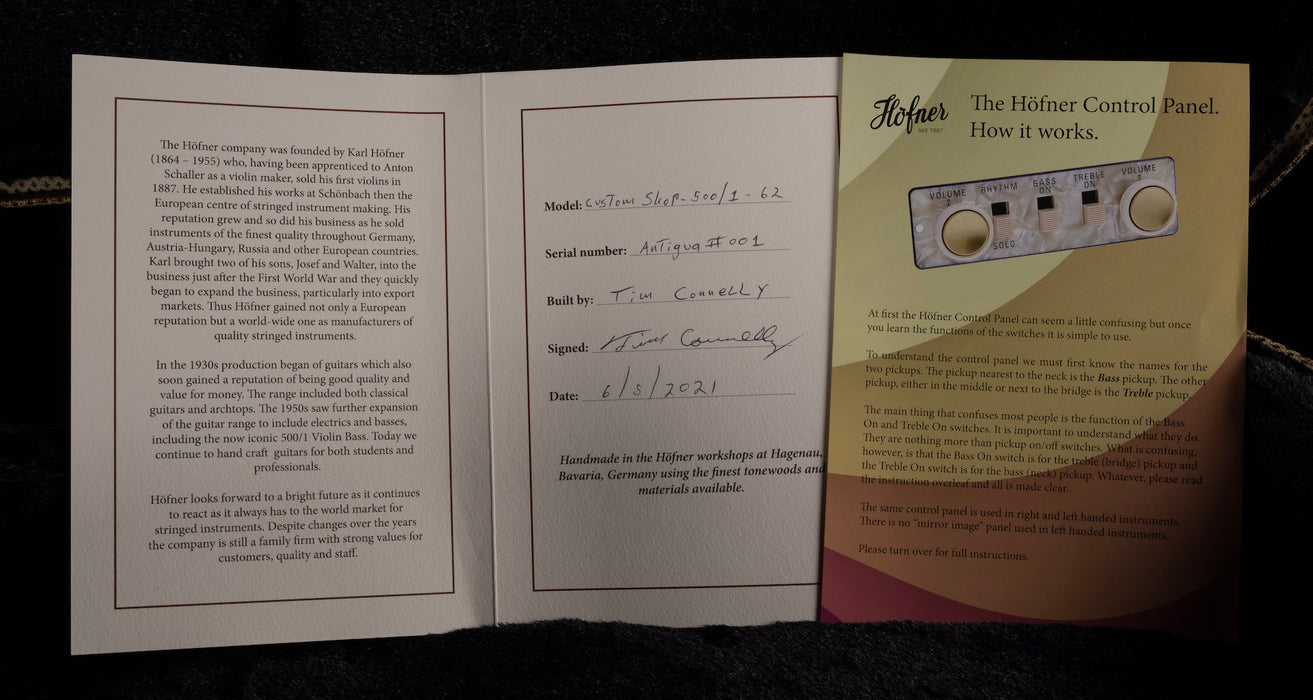 The Höfner company was founded by Karl Höfner
(1864 – 1955) who, having been apprenticed to Anton
Schaller as a violin maker, sold his first violins in
1887. He established his works at Schönbach then the
European centre of stringed instrument making. His
reputation grew and so did his business as he sold
instruments of the finest quality throughout Germany,
Austria-Hungary, Russia and other European countries.
Karl brought two of his sons, Josef and Walter, into the
business just after the First World War and they quickly
began to expand the business, particularly into export
markets. Thus Höfner gained not only a European
reputation but a world-wide one as manufacturers of
quality stringed instruments.
In the 1930s production began of guitars which also
soon gained a reputation of being good quality and
value for money. The range included both classical
guitars and archtops. The 1950s saw further expansion
of the guitar range to include electrics and basses,
including the now iconic 500/1 Violin Bass. Today we
continue to hand craft guitars for both students and
professionals.
Höfner looks forward to a bright future as it continues
to react as it always has to the world market for
stringed instruments. Despite changes over the years
the company is still a family firm with strong values for
customers, quality and staff.
Model: Custom Shop-500/1-62
Serial number: Antigua # 001
Built by: Tim Connelly
Signed: Tim Connelly
Date: 6/5/2021
Handmade in the Höfner workshops at Hagenau,
Bavaria, Germany using the finest tonewoods and
materials available.
Höfner
seit 1887
The Höfner Control Panel.
How it works.
VOLUME 2 RHYTHM SOLO BASS ON TREBLE ON VOLUME 1
At first the Höfner Control Panel can seem a little confusing but once
you learn the functions of the switches it is simple to use.
To understand the control panel we must first know the names for the
two pickups. The pickup nearest to the neck is the Bass pickup. The other
pickup, either in the middle or next to the bridge is the Treble pickup.
The main thing that confuses most people is the function of the Bass
On and Treble On switches. It is important to understand what they do.
They are nothing more than pickup on/off switches. What is confusing,
however, is that the Bass On switch is for the treble (bridge) pickup and
the Treble On switch is for the bass (neck) pickup. Whatever, please read
the instruction overleaf and all is made clear.
The same control panel is used in right and left handed instruments.
There is no "mirror image" panel used in left handed instruments.
Please turn over for full instructions.